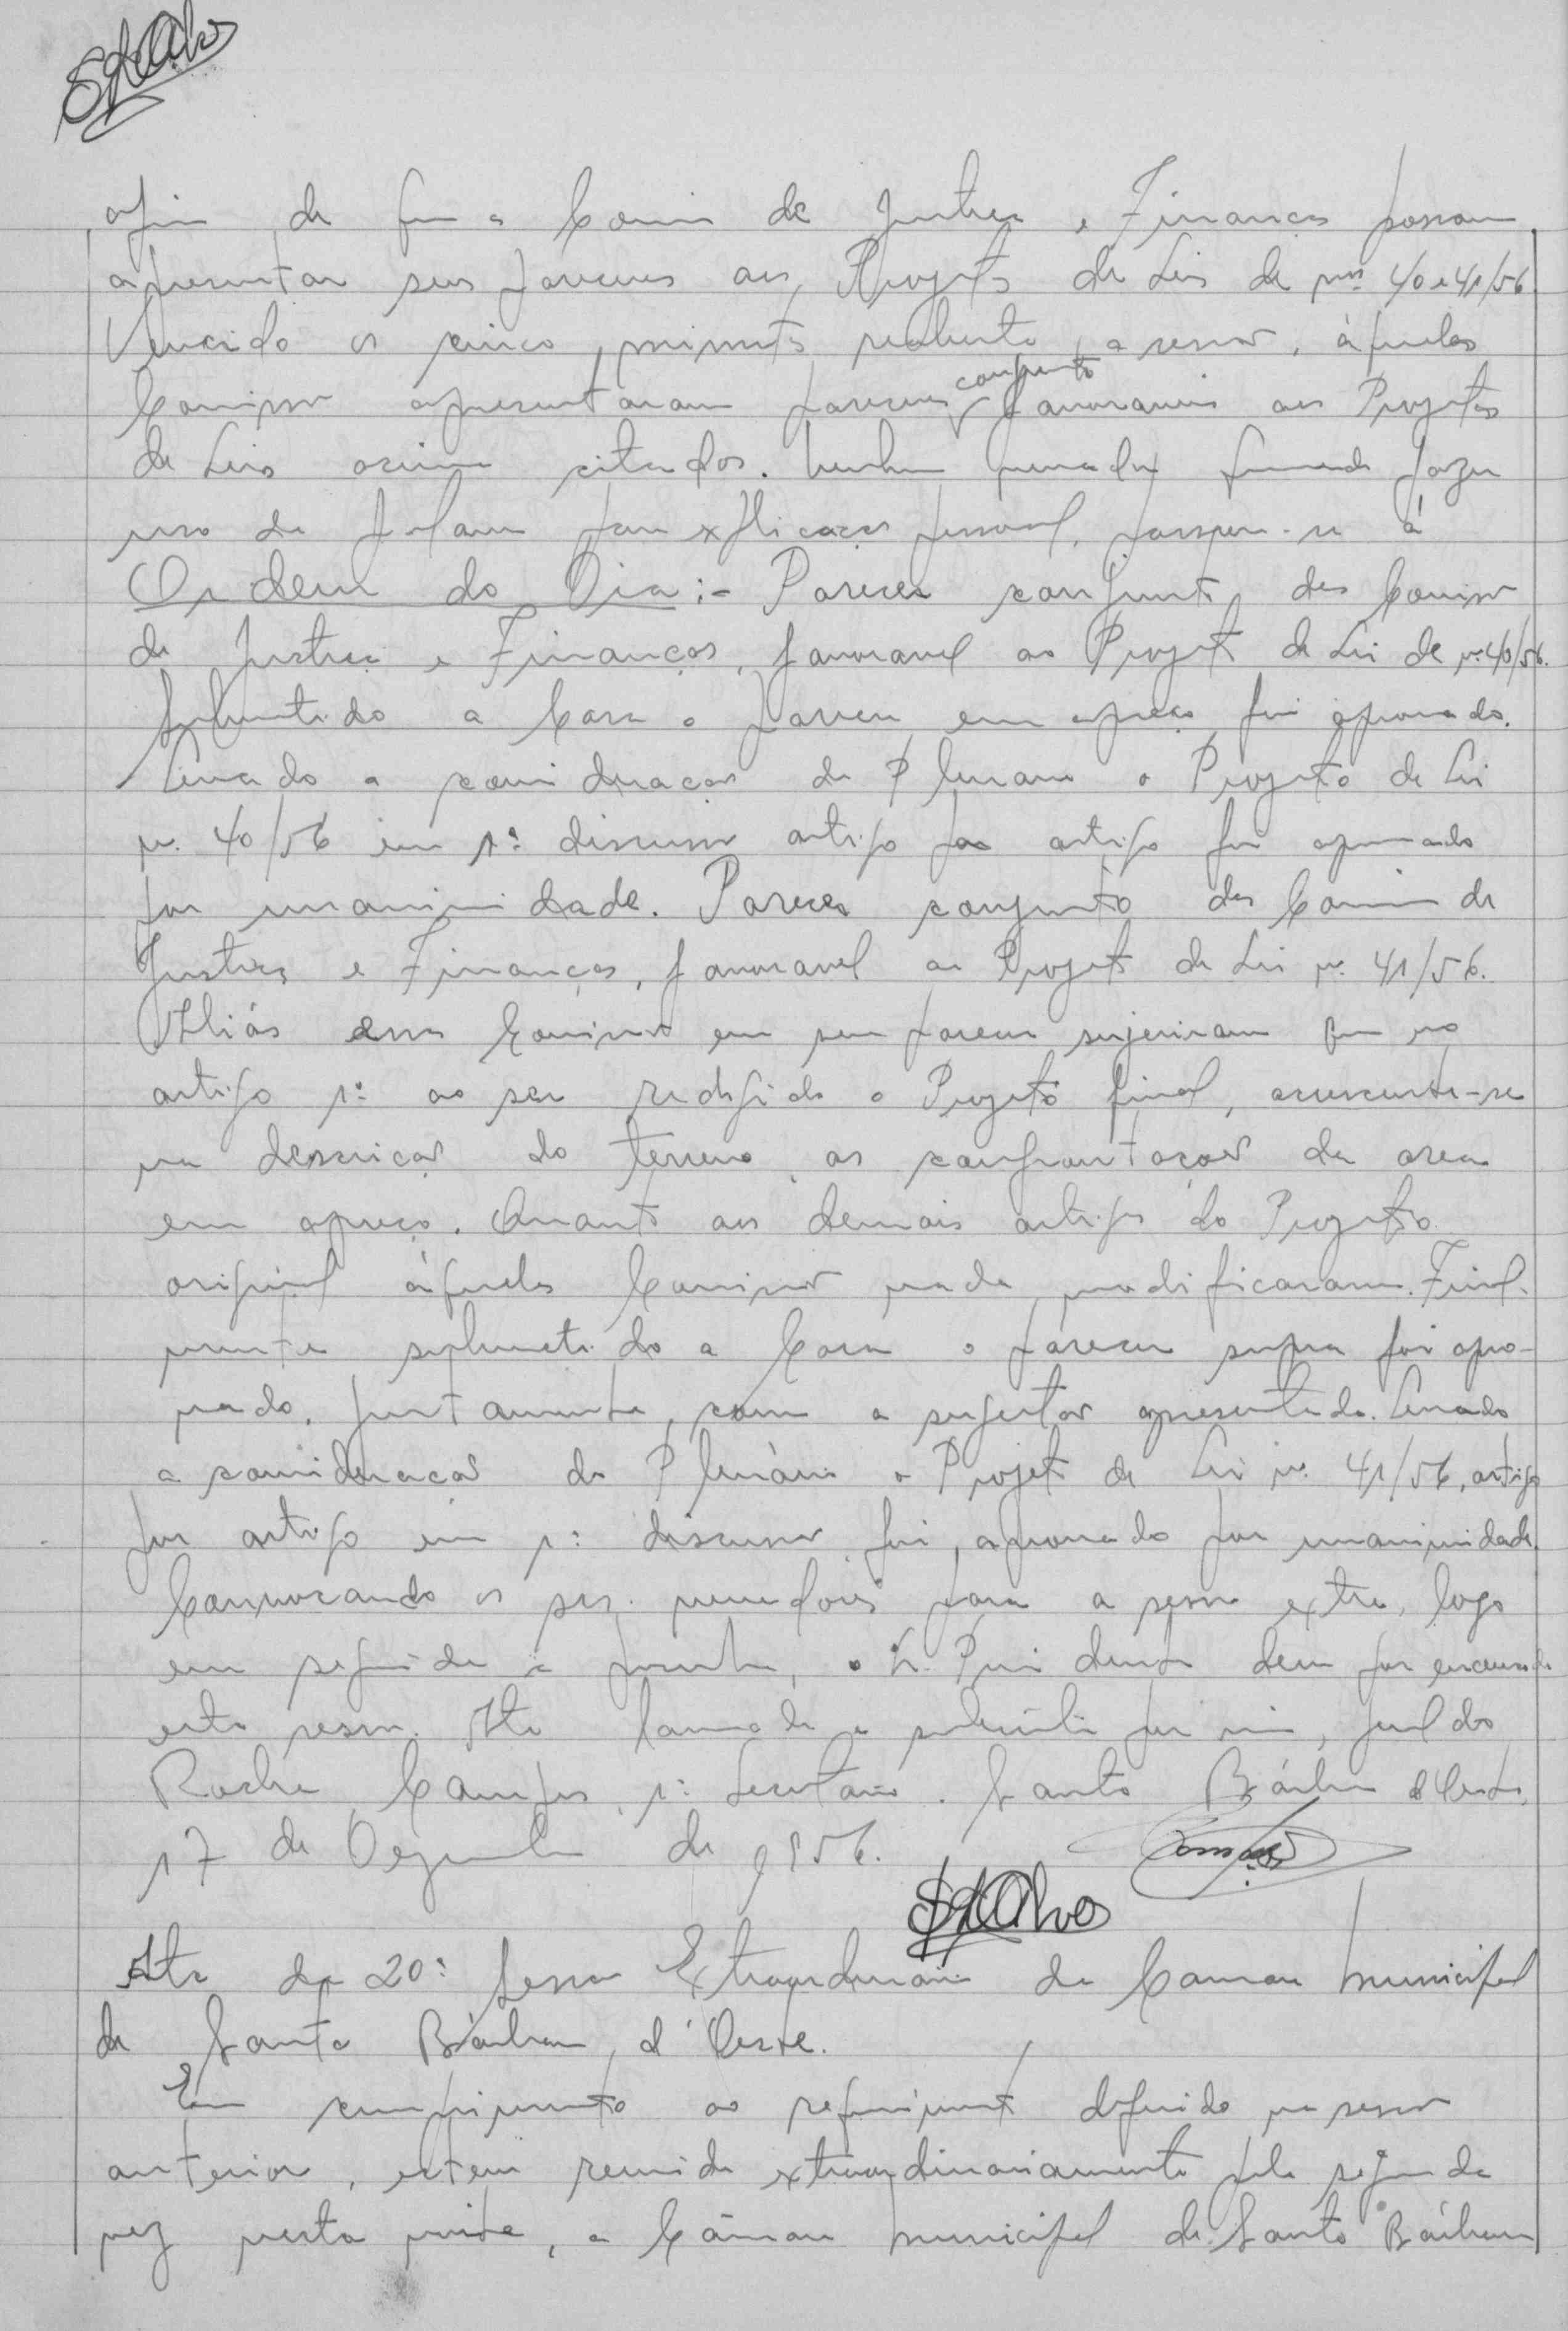 afim de que a Comissão de Justiça e Finanças possam
apresentar seus pareceres aos Projetos de Leis de nos. 40 e 41/56
Vencido os cinco minutos, reaberta a sessão, àquelas
Comissões apresentaram pareceres conjunto favoraveis aos Projetos
de Leis acima citados. Nenhum vereador querendo fazer
uso da palavra para explicação pessoal, passou-se à
Ordem do Dia:- Parecer conjunto das Comissões
de Justiça e Finanças, favoravel ao Projeto de Lei de nº 40/56.
Submetido a Casa o parecer em apreço foi aprovado.
Levado a consideração do Plenario o Projeto de Lei
nº 40/56 em 1ª discussão artigo por artigo foi aprovado
por unanimidade. Parecer conjunto das Comissões de
Justiça e Finanças, favoravel ao Projeto de Lei nº 41/56.
Aliás essas Comissões em seu parecer sugeriram que no
artigo 1º ao ser redigido o Projeto final, acrescente-se
na descrição do terreno as confrontações da area
em apreço. Quanto aos demais artigos do Projeto
original àquelas Comissões nada modificaram. Final-
mente submetido a Casa o parecer supra foi apro-
vado, juntamente com a sugestão apresentada. Levado
a consideração do Plenário o Projeto de Lei nº 41/56, artigo
por artigo em 1ª discussão foi aprovado por unanimidade.
Convocando os srs. vereadores para a sessão extra, logo
em seguida a presente, o Sr. Presidente deu por encerrada
esta sessão. Ata lavrada e subscrita por mim,
Rocha Campos, 1º Secretario. Santa Bárbara d'Oeste,
17 de Dezembro de 1956.
Campos
Ata da 20ª Sessão Extraordinaria da Camara Municipal
de Santa Bárbara, d'Oeste.
Em cumprimento ao requerimento deferido na sessão
anterior, esteve reunida extraordinariamente pela segunda
vez nesta noite, a Câmara Municipal de Santa Bárbara